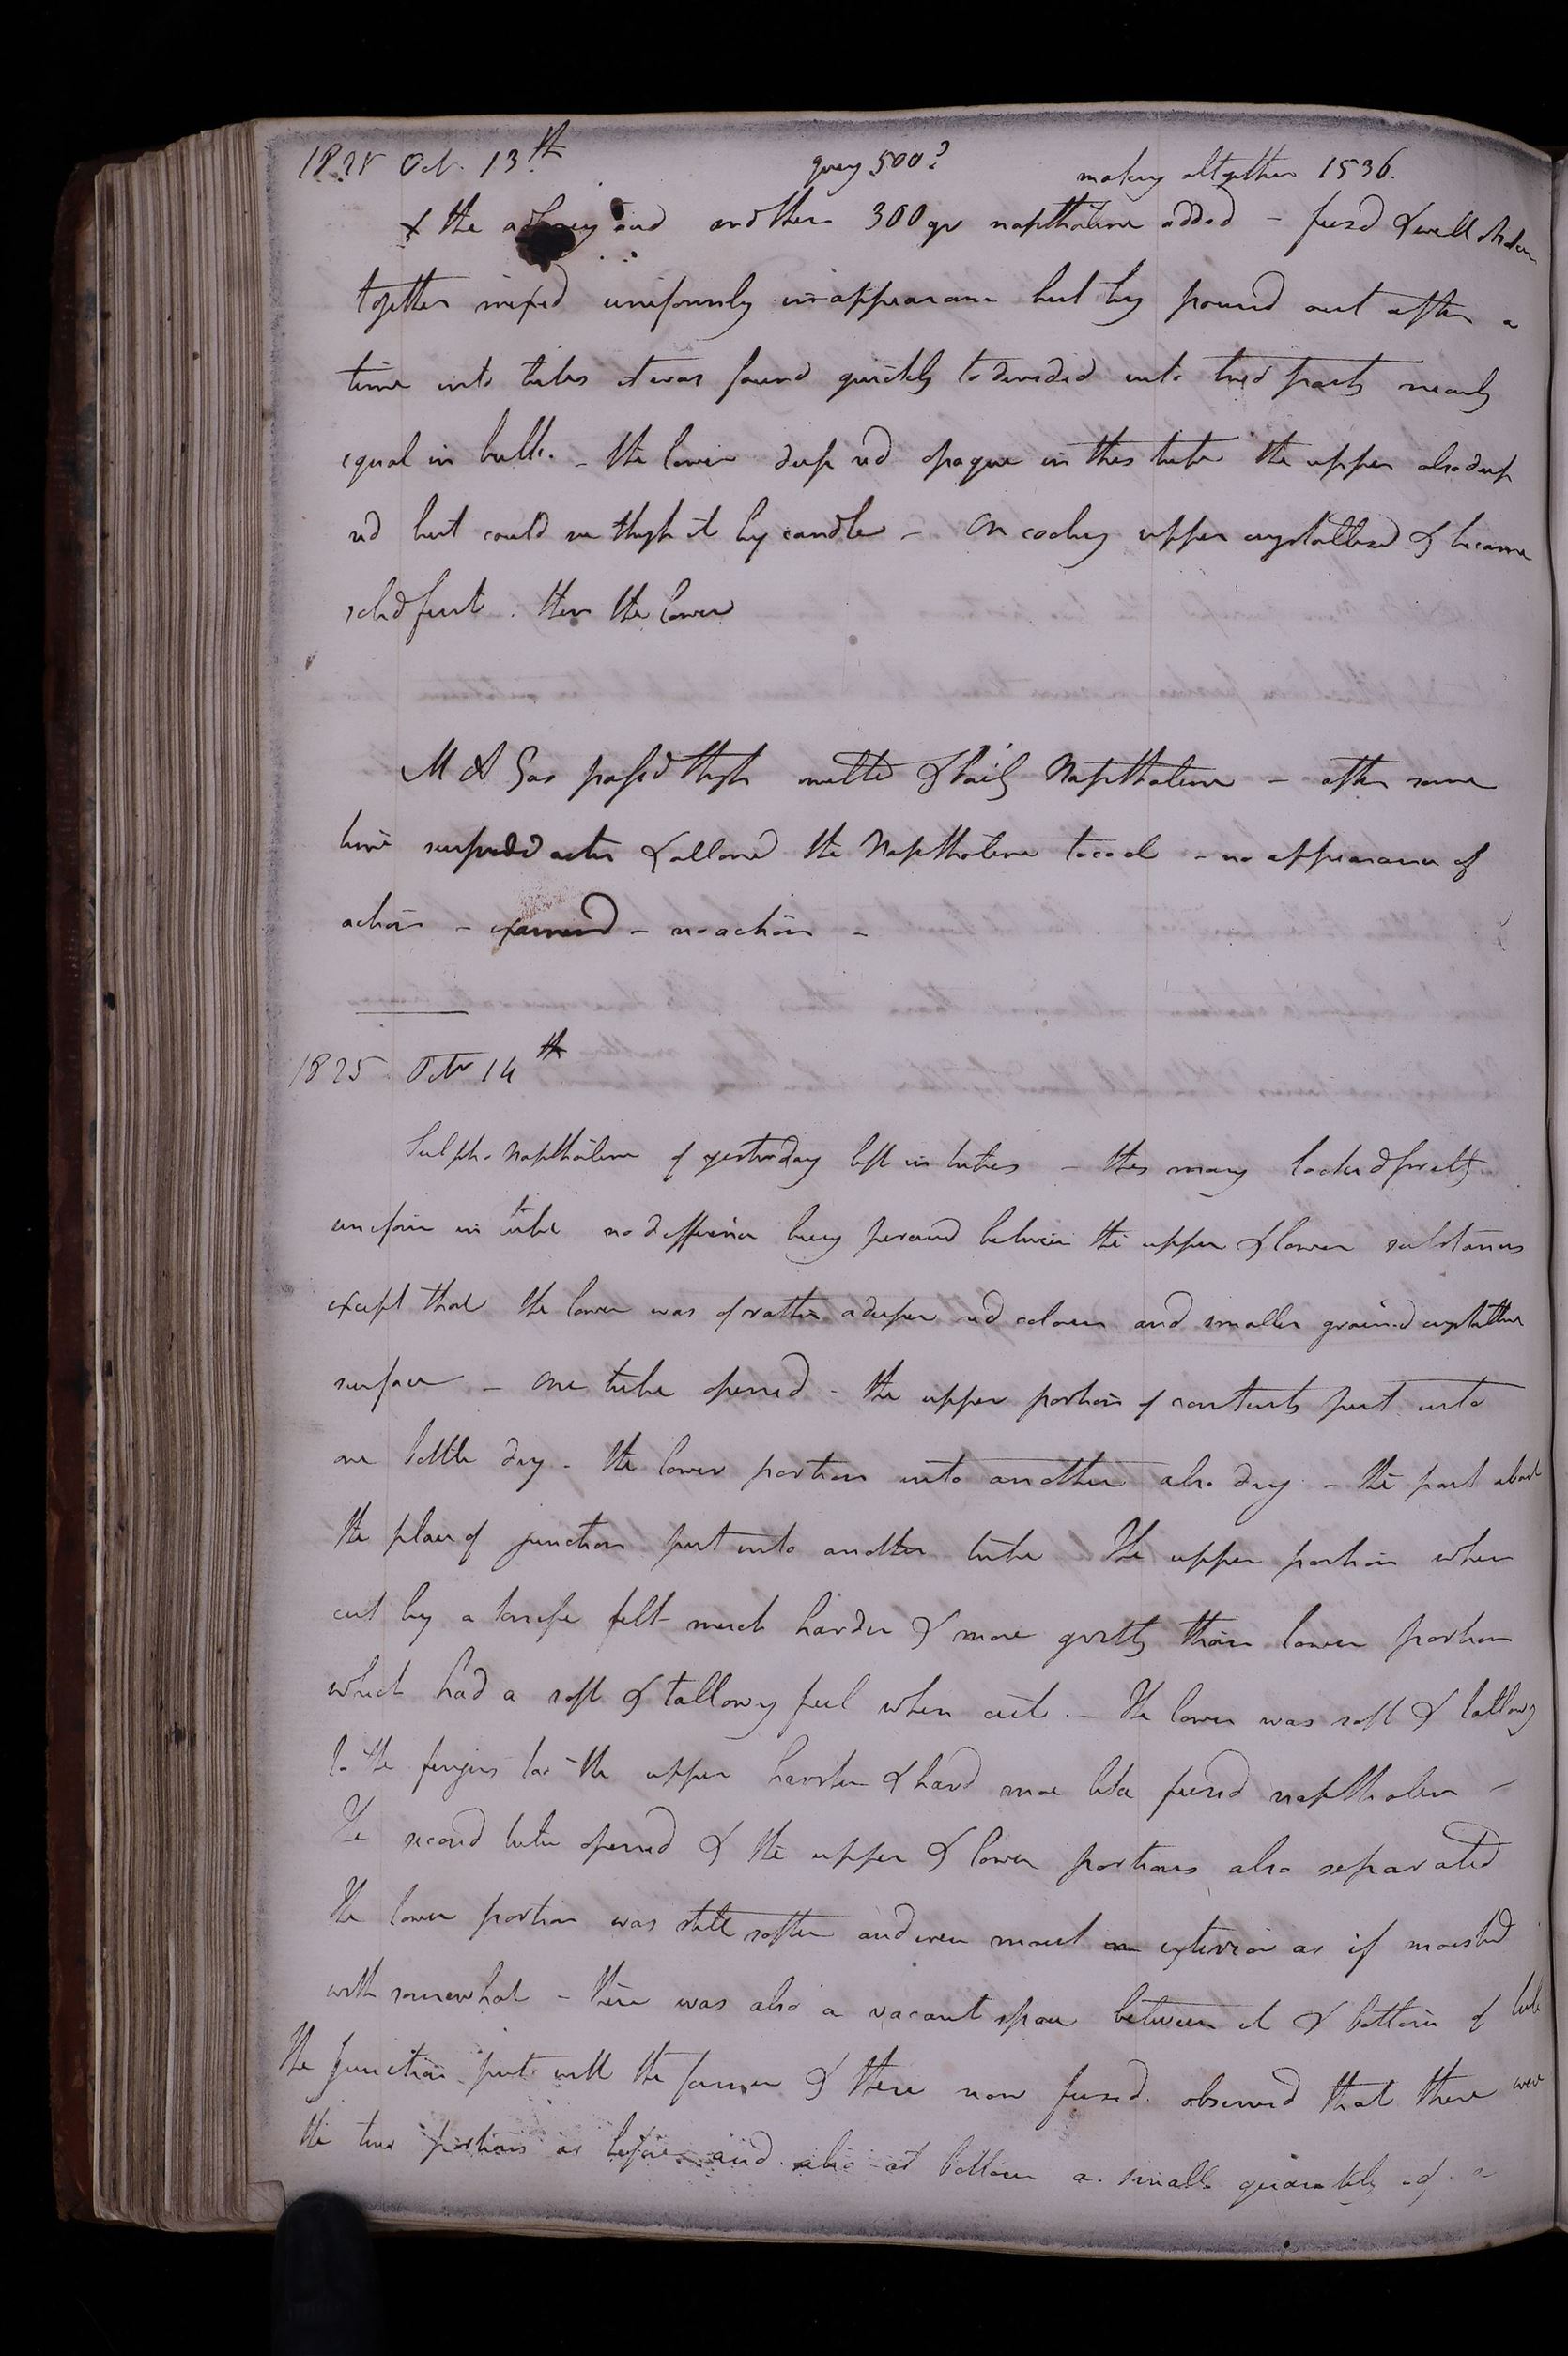 1825 Oct. 13th query 500? making altogether 1536.
& the and another 300 gr napthaline added - fused & well shaken
together mixed uniformly in appearance but by pourd out after a
time into tubes it was found quickly to divided into two parts nearly
equal in bulk. - the lower deep red opaque in this tube the upper also deep
red but could see thrgh it by candle - On cooling upper crystallised & became
solid first. then the lower
M A Gas passed thrgh melted & boilg Napthaline - after some
time suspended action & allowed the Napthaline to cool - no appearance of
action - examined - no action -
1825 Octr 14th
Sulpho Napthaline of yesterday left in tubes - this morng looked pretty
uniform in tube no difference being percevd between the upper & lower substances
except that the lower was of rather a deeper red colour and smaller grained crystalline
surface - One tube opened - the upper portion of contents put into
one bottle dry - the lower portion into another also dry - the part about
the place of junction put into another tube The upper portion when
cut by a knife felt much harder & more gritty than lower portion
which had a soft & tallowy feel when cut. - The lower was soft & tallowy
to the fingers too the upper harsher & hard more like fused napthaline -
The second tube opened & the upper & lower portions also separated
The lower portion was still softer and even moist on exterior as if moistened
with somewhat - there was also a vacant space between it & bottom of tube
The junction put with the former & these now fused. observed that there were
the two portions as before and also at bottom a small quantity of a